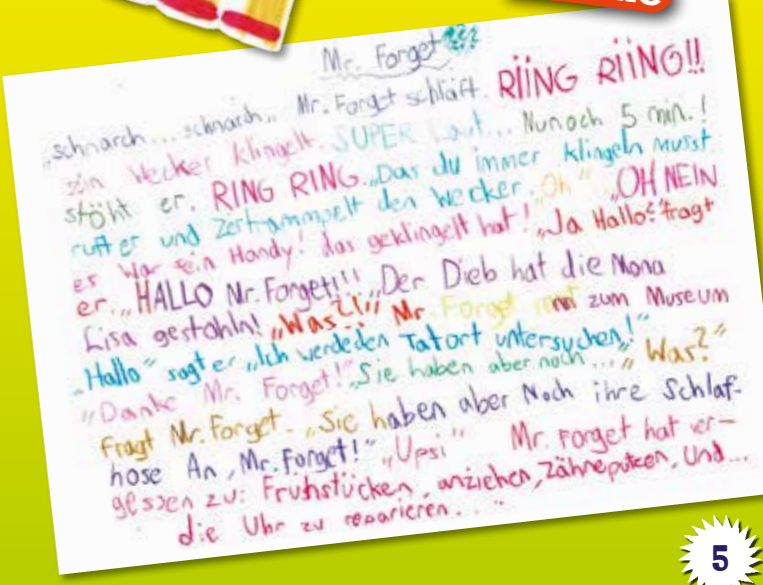 Mr. Forget???
„schnarch... schnarch„ Mr. Forget schläft. RIING RIING!!
sein Wecker klingelt. SUPER Laut... Nunoch 5 min.!
stöht er. RING RING „Das du immer klingeln musst
ruft er und zertrammpelt den Wecker. „Oh" „OH NEIN
es war sein Handy! das geklingelt hat! „Ja Hallo? fragt
er. „HALLO Mr. Forget!!! „Der Dieb hat die Mona
Lisa gestohln! „Was?!" Mr. Forget zum Museum
„Hallo" sagt er „Ich werde den Tatort untersuchen!"
„Danke Mr. Forget!" „Sie haben aber noch...„ Was?"
fragt Mr. Forget. „Sie haben aber Noch ihre Schlaf-
hose An, Mr. Forget!" „Upsi" Mr. Forget hat ver-
gessen zu: Fruhstücken, anziehen, Zähneputzen, Und...
die Uhr zu reparieren...
5